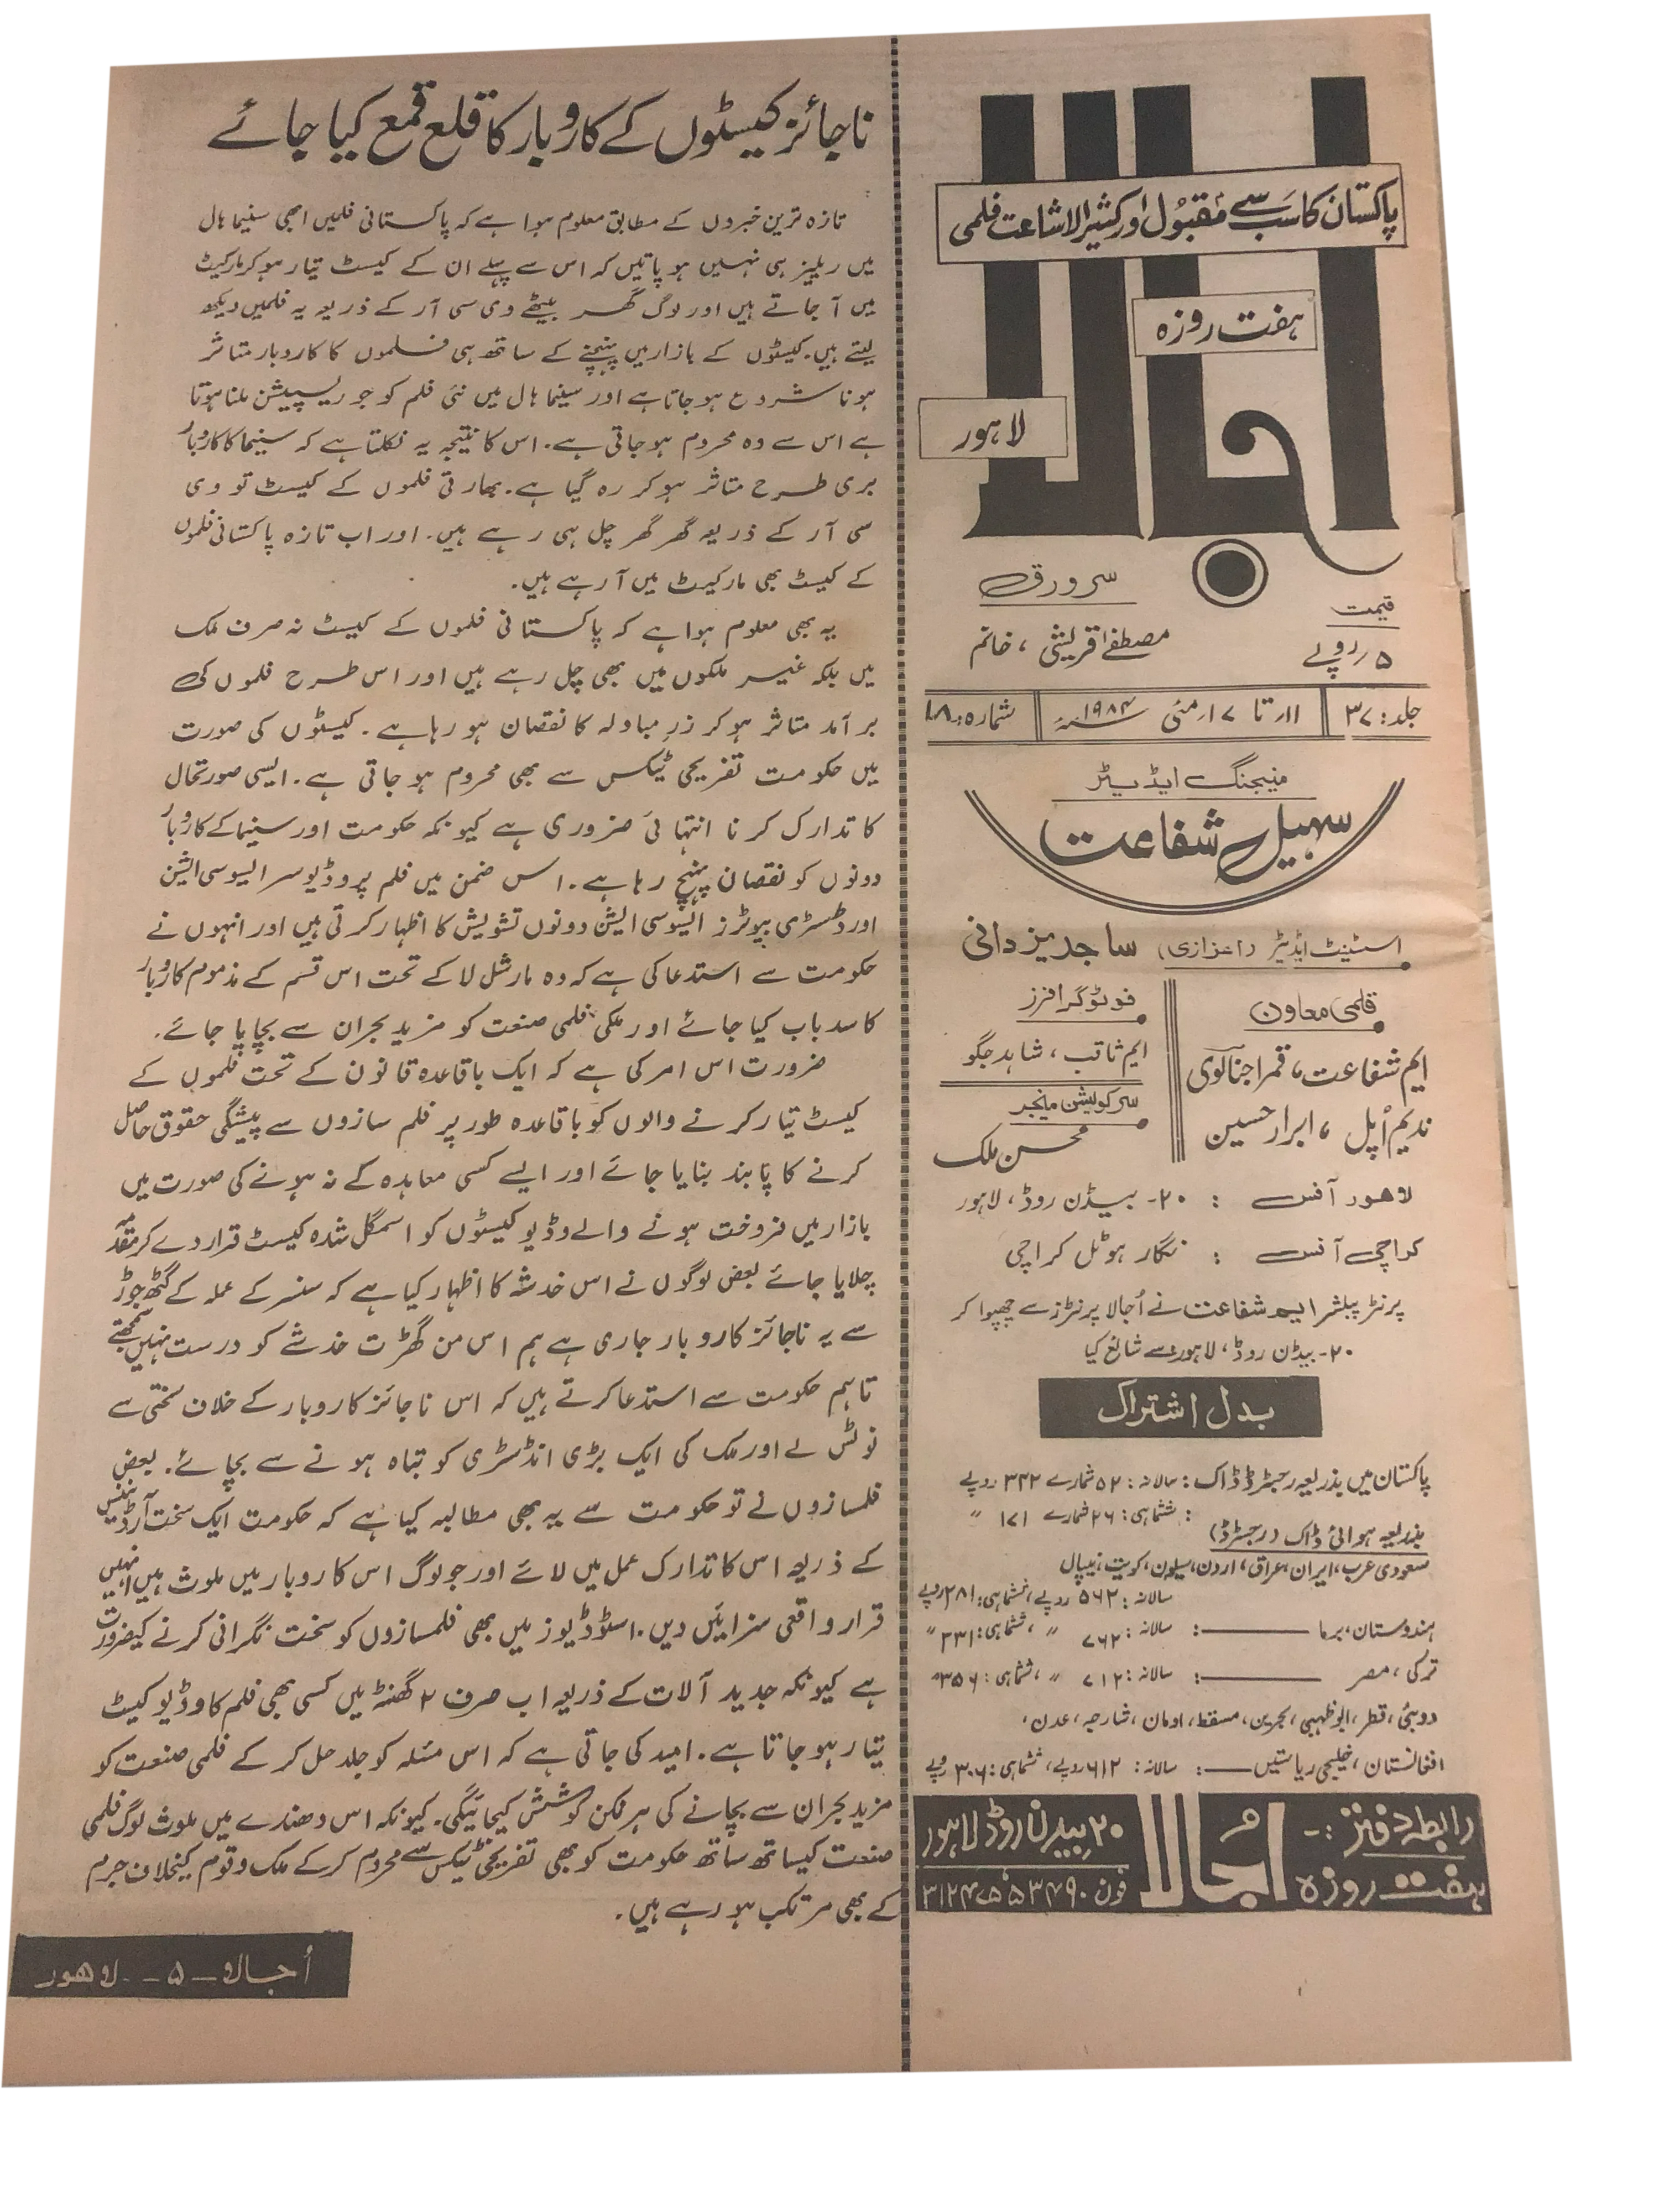 پاکستان کا سب سے مقبول اور کثیر الاشاعت فلمی
ہفت روزہ
اجالا
لاہور
سرورق
مصطفےٰ قریشی ، خانم
قیمت
۵ روپے
جلد: ۳۷
۱۱ تا ۱۷ مئی ۱۹۸۴ء
شمارہ: ۱۸
منیجنگ ایڈیٹر
سہیل شفاعت
اسٹنٹ ایڈیٹر (اعزازی) ساجد یزدانی
قلمی معاون
ایم شفاعت، قمر اجنالوی
ندیم اُپل ، ابرار حسین
فوٹوگرافرز
ایم ثاقب ، شاہد جگو
سرکولیشن منیجر
محسن ملک
لاھور آفس : ۲۰- بیڈن روڈ، لاہور
کراچی آفس : نگار ہوٹل کراچی
پرنٹر پبلشر ایم شفاعت نے اُجالا پرنٹرز سے چھپوا کر
۲۰- بیڈن روڈ، لاہور سے شائع کیا
بدل اشتراک
پاکستان میں بذریعہ رجسٹرڈ ڈاک: سالانہ: ۵۲ شمارے ۳۴۲ روپے
: ششماہی: ۲۶ شمارے ۱۷۱ "
بذریعہ ہوائی ڈاک (رجسٹرڈ)
سعودی عرب، ایران، عراق، اردن، سیلون، کویت، نیپال
سالانہ: ۵۶۲ روپے، ششماہی: ۲۸۱ روپے
ہندوستان، برما ــــــ: سالانہ: ۷۶۲ " ، ششماہی: ۳۳۱ "
ترکی ، مصر ــــــ: سالانہ: ۷۱۲ " ، ششماہی: ۳۵۶ "
دوبئی، قطر، ابوظہبی، بحرین، مسقط، اومان، شارجہ، عدن،
افغانستان ، خلیجی ریاستیں ــــ: سالانہ: ۶۱۲ روپے، ششماہی: ۳۰۶ روپے
رابطہ دفتر :-
ہفت روزہ
اُجالا
۲۰ بیڈن روڈ لاہور
فون
ناجائز کیسٹوں کے کاروبار کا قلع قمع کیا جائے
تازہ ترین خبروں کے مطابق معلوم ہوا ہے کہ پاکستانی فلمیں ابھی سنیما ہال
میں ریلیز ہی نہیں ہو پاتیں کہ اس سے پہلے ان کے کیسٹ تیار ہوکر مارکیٹ
میں آ جاتے ہیں اور لوگ گھر بیٹھے وی سی آر کے ذریعہ یہ فلمیں دیکھ
لیتے ہیں۔ کیسٹوں کے بازار میں پہنچنے کے ساتھ ہی فلموں کا کاروبار متاثر
ہونا شروع ہو جاتا ہے اور سینما ہال میں نئی فلم کو جو ریسپشن ملنا ہوتا
ہے اس سے وہ محروم ہو جاتی ہے۔ اس کا نتیجہ یہ نکلتا ہے کہ سنیما کا کاروبار
بری طرح متاثر ہو کر رہ گیا ہے۔ بھارتی فلموں کے کیسٹ تو وی
سی آر کے ذریعہ گھر گھر چل ہی رہے ہیں۔ اور اب تازہ پاکستانی فلموں
کے کیسٹ بھی مارکیٹ میں آ رہے ہیں۔
یہ بھی معلوم ہوا ہے کہ پاکستانی فلموں کے کیسٹ نہ صرف ملک
میں بلکہ غیر ملکوں میں بھی چل رہے ہیں اور اس طرح فلموں کی
برآمد متاثر ہو کر زرِ مبادلہ کا نقصان ہو رہا ہے۔ کیسٹوں کی صورت
میں حکومت تفریحی ٹیکس سے بھی محروم ہو جاتی ہے۔ ایسی صورتحال
کا تدارک کرنا انتہائی ضروری ہے کیونکہ حکومت اور سنیما کے کاروبار
دونوں کو نقصان پہنچ رہا ہے۔ اس ضمن میں فلم پروڈیوسر ایسوسی ایشن
اور ڈسٹری بیوٹرز ایسوسی ایشن دونوں تشویش کا اظہار کرتی ہیں اور انہوں نے
حکومت سے استدعا کی ہے کہ وہ مارشل لا کے تحت اس قسم کے مذموم کاروبار
کا سدباب کیا جائے اور ملکی فلمی صنعت کو مزید بحران سے بچایا جائے۔
ضرورت اس امر کی ہے کہ ایک باقاعدہ قانون کے تحت فلموں کے
کیسٹ تیار کرنے والوں کو باقاعدہ طور پر فلم سازوں سے پیشگی حقوق حاصل
کرنے کا پابند بنایا جائے اور ایسے کسی معاہدہ کے نہ ہونے کی صورت میں
بازار میں فروخت ہونے والے وڈیو کیسٹوں کو اسمگل شدہ کیسٹ قرار دے کر مقدمہ
چلایا جائے بعض لوگوں نے اس خدشہ کا اظہار کیا ہے کہ سنسر کے عملہ کے گٹھ جوڑ
سے یہ ناجائز کاروبار جاری ہے ہم اس من گھڑت خدشے کو درست نہیں سمجھتے
تاہم حکومت سے استدعا کرتے ہیں کہ اس ناجائز کاروبار کے خلاف سختی سے
نوٹس لے اور ملک کی ایک بڑی انڈسٹری کو تباہ ہونے سے بچائے۔ بعض
فلمسازوں نے تو حکومت سے یہ بھی مطالبہ کیا ہے کہ حکومت ایک سخت آرڈیننس
کے ذریعہ اس کا تدارک عمل میں لائے اور جو لوگ اس کاروبار میں ملوث ہیں انہیں
قرار واقعی سزائیں دیں۔ اسٹوڈیوز میں بھی فلمسازوں کو سخت نگرانی کرنے کی ضرورت
ہے کیونکہ جدید آلات کے ذریعہ اب صرف ۲ گھنٹہ میں کسی بھی فلم کا وڈیو کیسٹ
تیار ہو جاتا ہے۔ امید کی جاتی ہے کہ اس مسئلہ کو جلد حل کر کے فلمی صنعت کو
مزید بحران سے بچانے کی ہر ممکن کوشش کیجائیگی۔ کیونکہ اس دھندے میں ملوث لوگ فلمی
صنعت کیساتھ ساتھ حکومت کو بھی تفریحی ٹیکس سے محروم کر کے ملک و قوم کیخلاف جرم
کے بھی مرتکب ہو رہے ہیں۔
اُجالا ــ ۵ ــ لاھور